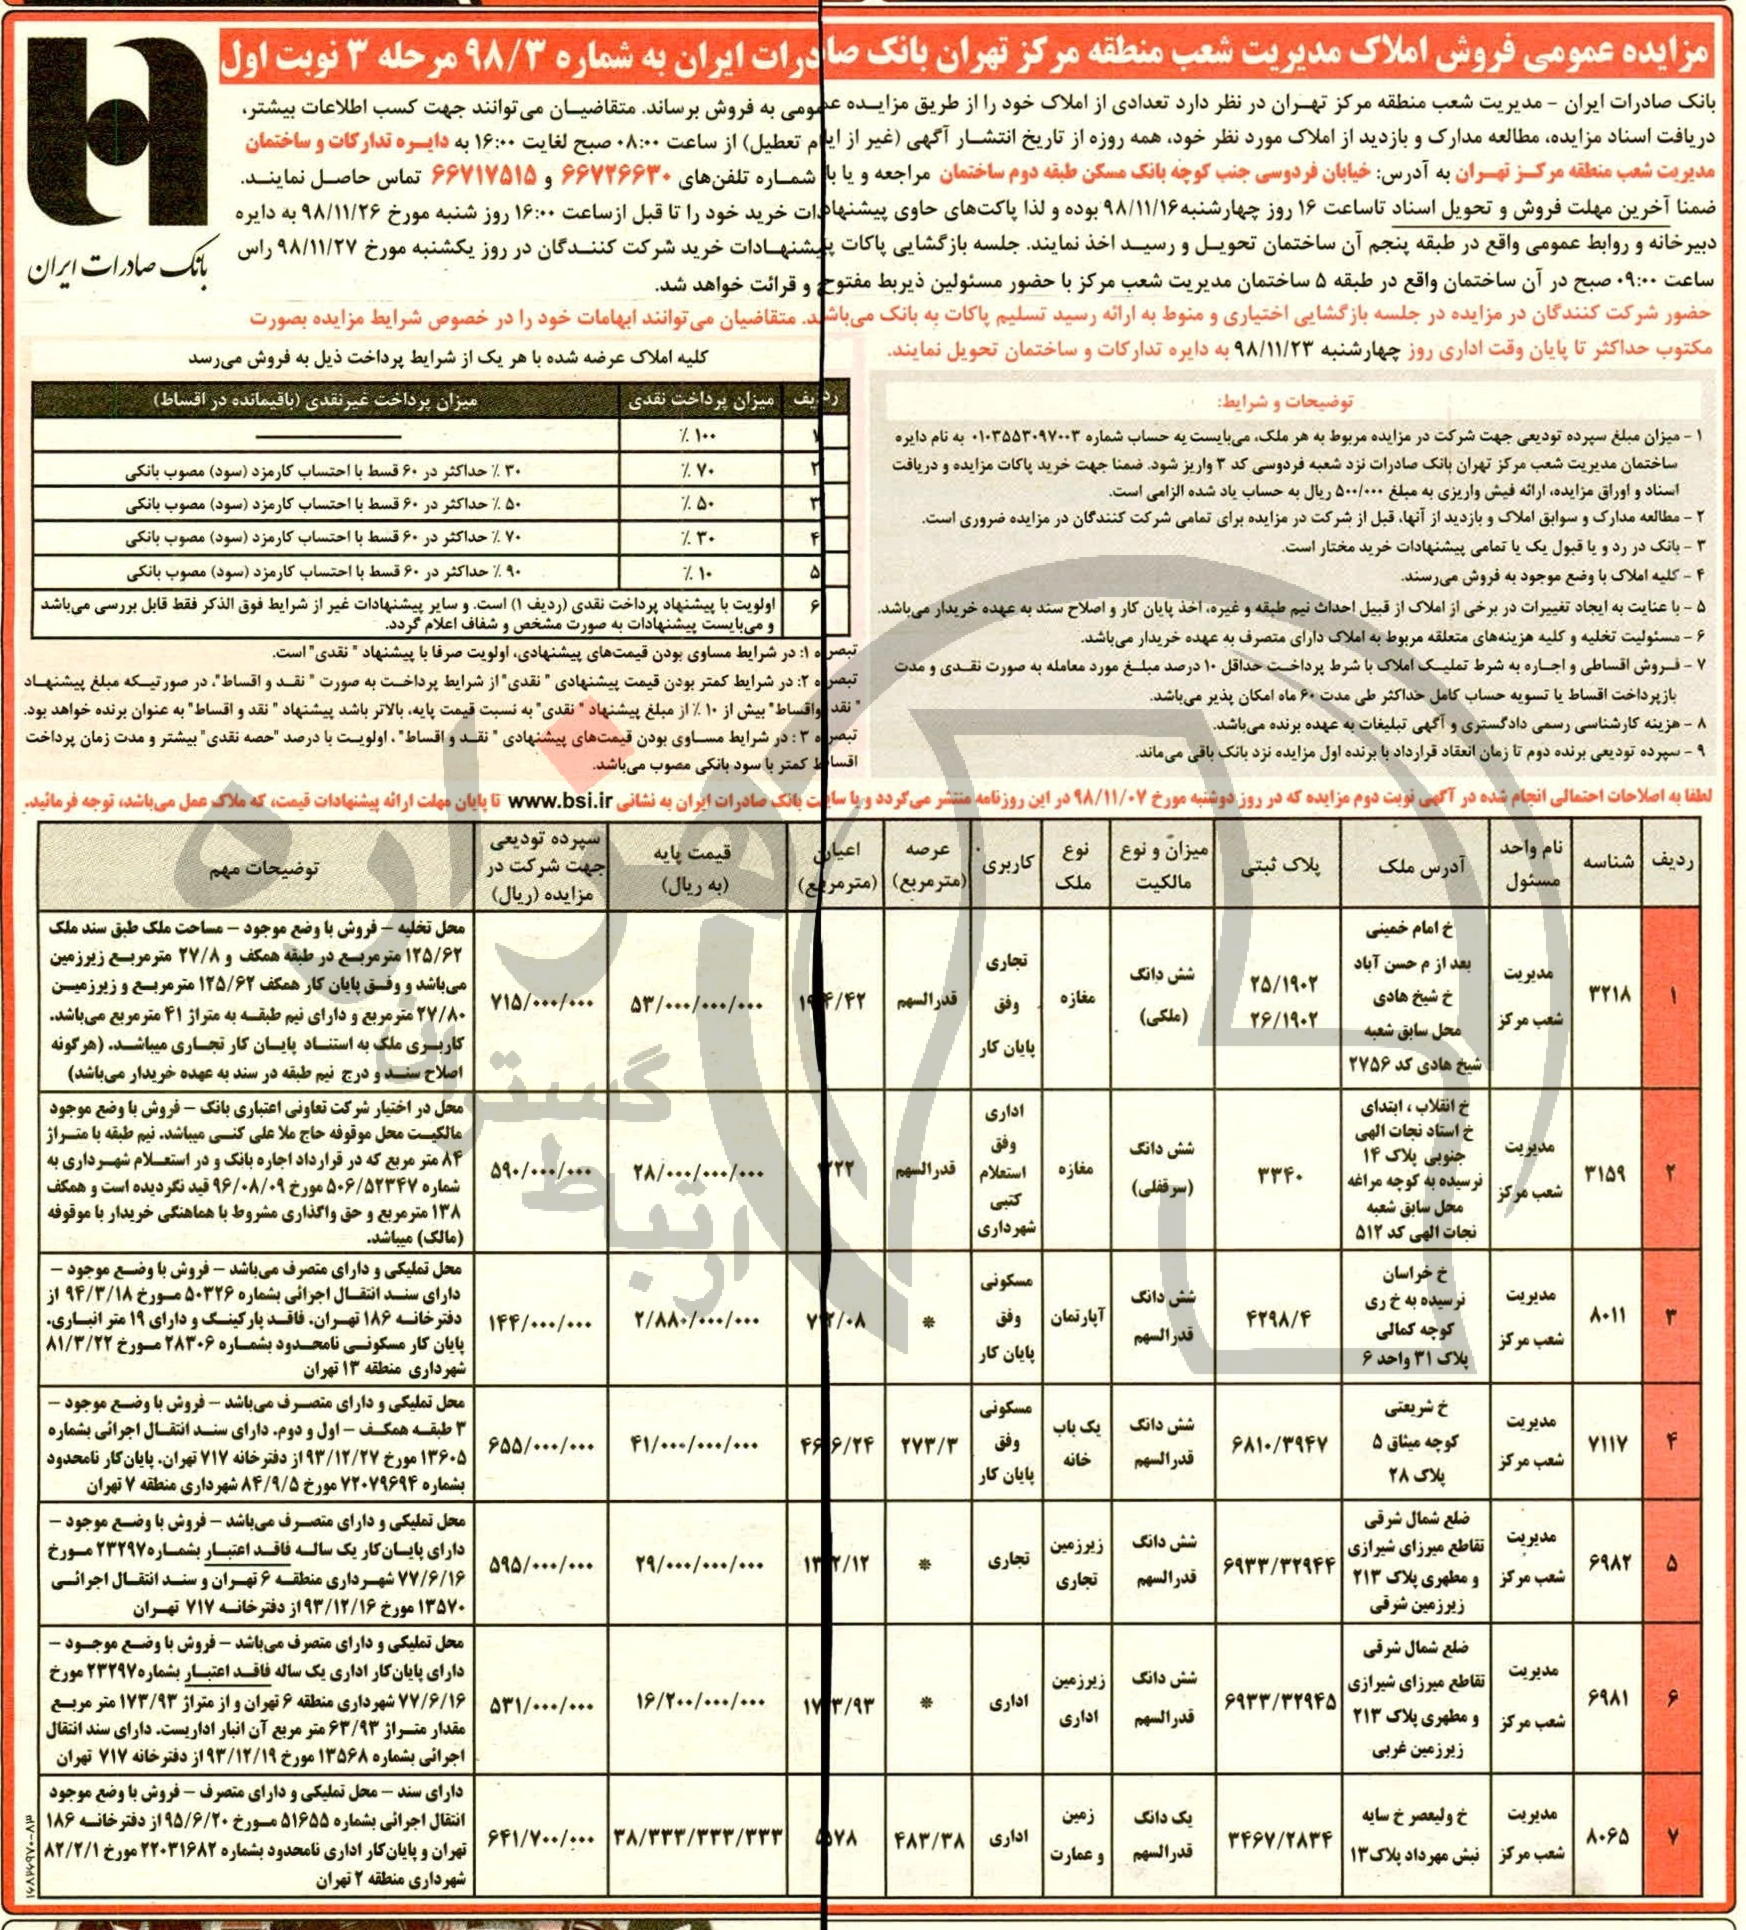 مزایده عمومی فروش املاک مدیریت شعب منطقه مرکز تهران بانک صادرات ایران به شماره ۹۸/۳ مرحله ۳ نوبت اول
بانک صادرات ایران
بانک صادرات ایران - مدیریت شعب منطقه مرکز تهران در نظر دارد تعدادی از املاک خود را از طریق مزایده عمومی به فروش برساند. متقاضیان می‌توانند جهت کسب اطلاعات بیشتر،
دریافت اسناد مزایده، مطالعه مدارک و بازدید از املاک مورد نظر خود، همه روزه از تاریخ انتشار آگهی (غیر از ایام تعطیل) از ساعت ۰۸:۰۰ صبح لغایت ۱۶:۰۰ به دایره تدارکات و ساختمان
مدیریت شعب منطقه مرکز تهران به آدرس: خیابان فردوسی جنب کوچه بانک مسکن طبقه دوم ساختمان مراجعه و یا با شماره تلفن‌های ۶۶۷۲۶۶۳۰ و ۶۶۷۱۷۵۱۵ تماس حاصل نمایند.
ضمنا آخرین مهلت فروش و تحویل اسناد تاساعت ۱۶ روز چهارشنبه ۹۸/۱۱/۱۶ بوده و لذا پاکت‌های حاوی پیشنهادات خرید خود را تا قبل ازساعت ۱۶:۰۰ روز شنبه مورخ ۹۸/۱۱/۲۶ به دایره
دبیرخانه و روابط عمومی واقع در طبقه پنجم آن ساختمان تحویل و رسید اخذ نمایند. جلسه بازگشایی پاکات پیشنهادات خرید شرکت کنندگان در روز یکشنبه مورخ ۹۸/۱۱/۲۷ راس
ساعت ۰۹:۰۰ صبح در آن ساختمان واقع در طبقه ۵ ساختمان مدیریت شعب مرکز با حضور مسئولین ذیربط مفتوح و قرائت خواهد شد.
حضور شرکت کنندگان در مزایده در جلسه بازگشایی اختیاری و منوط به ارائه رسید تسلیم پاکات به بانک می‌باشد. متقاضیان می‌توانند ابهامات خود را در خصوص شرایط مزایده بصورت
مکتوب حداکثر تا پایان وقت اداری روز چهارشنبه ۹۸/۱۱/۲۳ به دایره تدارکات و ساختمان تحویل نمایند.
توضیحات و شرایط:
۱ - میزان مبلغ سپرده تودیعی جهت شرکت در مزایده مربوط به هر ملک، می‌بایست به حساب شماره ۰۱۰۳۵۵۳۰۹۷۰۰۳ به نام دایره
ساختمان مدیریت شعب مرکز تهران بانک صادرات نزد شعبه فردوسی کد ۳ واریز شود. ضمنا جهت خرید پاکات مزایده و دریافت
اسناد و اوراق مزایده، ارائه فیش واریزی به مبلغ ۵۰۰/۰۰۰ ریال به حساب یاد شده الزامی است.
۲ - مطالعه مدارک و سوابق املاک و بازدید از آنها، قبل از شرکت در مزایده برای تمامی شرکت کنندگان در مزایده ضروری است.
۳ - بانک در رد و یا قبول یک یا تمامی پیشنهادات خرید مختار است.
۴ - کلیه املاک با وضع موجود به فروش می‌رسند.
۵ - با عنایت به ایجاد تغییرات در برخی از املاک از قبیل احداث نیم طبقه و غیره، اخذ پایان کار و اصلاح سند به عهده خریدار می‌باشد.
۶ - مسئولیت تخلیه و کلیه هزینه‌های متعلقه مربوط به املاک دارای متصرف به عهده خریدار می‌باشد.
۷ - فروش اقساطی و اجاره به شرط تملیک املاک با شرط پرداخت حداقل ۱۰ درصد مبلغ مورد معامله به صورت نقدی و مدت
بازپرداخت اقساط یا تسویه حساب کامل حداکثر طی مدت ۶۰ ماه امکان پذیر می‌باشد.
۸ - هزینه کارشناسی رسمی دادگستری و آگهی تبلیغات به عهده برنده می‌باشد.
۹ - سپرده تودیعی برنده دوم تا زمان انعقاد قرارداد با برنده اول مزایده نزد بانک باقی می‌ماند.
کلیه املاک عرضه شده با هر یک از شرایط پرداخت ذیل به فروش می‌رسد
ردیف میزان پرداخت نقدی میزان پرداخت غیرنقدی (باقیمانده در اقساط)
۱ ۱۰۰ ٪
۲ ۷۰ ٪ ۳۰ ٪ حداکثر در ۶۰ قسط با احتساب کارمزد (سود) مصوب بانکی
۳ ۵۰ ٪ ۵۰ ٪ حداکثر در ۶۰ قسط با احتساب کارمزد (سود) مصوب بانکی
۴ ۳۰ ٪ ۷۰ ٪ حداکثر در ۶۰ قسط با احتساب کارمزد (سود) مصوب بانکی
۵ ۱۰ ٪ ۹۰ ٪ حداکثر در ۶۰ قسط با احتساب کارمزد (سود) مصوب بانکی
۶ اولویت با پیشنهاد پرداخت نقدی (ردیف ۱) است. و سایر پیشنهادات غیر از شرایط فوق الذکر فقط قابل بررسی می‌باشد
و می‌بایست پیشنهادات به صورت مشخص و شفاف اعلام گردد.
تبصره ۱: در شرایط مساوی بودن قیمت‌های پیشنهادی، اولویت صرفا با پیشنهاد " نقدی" است.
تبصره ۲: در شرایط کمتر بودن قیمت پیشنهادی " نقدی" از شرایط پرداخت به صورت " نقد و اقساط"، در صورتیکه مبلغ پیشنهاد
" نقد واقساط" بیش از ۱۰ ٪ از مبلغ پیشنهاد " نقدی" به نسبت قیمت پایه، بالاتر باشد پیشنهاد " نقد و اقساط" به عنوان برنده خواهد بود.
تبصره ۳ : در شرایط مساوی بودن قیمت‌های پیشنهادی " نقد و اقساط" ، اولویت با درصد "حصه نقدی" بیشتر و مدت زمان پرداخت
اقساط کمتر با سود بانکی مصوب می‌باشد.
لطفا به اصلاحات احتمالی انجام شده در آگهی نوبت دوم مزایده که در روز دوشنبه مورخ ۹۸/۱۱/۰۷ در این روزنامه منتشر می‌گردد و یا سایت بانک صادرات ایران به نشانی www.bsi.ir تا پایان مهلت ارائه پیشنهادات قیمت، که ملاک عمل می‌باشد، توجه فرمائید.
ردیف شناسه نام واحد مسئول آدرس ملک پلاک ثبتی میزان و نوع مالکیت نوع ملک کاربری عرصه (مترمربع) اعیان (مترمربع) قیمت پایه (به ریال) سپرده تودیعی جهت شرکت در مزایده (ریال) توضیحات مهم
۱ ۳۲۱۸ مدیریت شعب مرکز
خ امام خمینی
بعد از م حسن آباد
خ شیخ هادی
محل سابق شعبه
شیخ هادی کد ۲۷۵۶
۲۵/۱۹۰۲
۲۶/۱۹۰۲
شش دانگ (ملکی) مغازه تجاری وفق پایان کار قدرالسهم ۱۹۴/۴۲ ۵۳/۰۰۰/۰۰۰/۰۰۰ ۷۱۵/۰۰۰/۰۰۰
محل تخلیه - فروش با وضع موجود - مساحت ملک طبق سند ملک
۱۲۵/۶۲ مترمربع در طبقه همکف و ۲۷/۸ مترمربع زیرزمین
می‌باشد و وفق پایان کار همکف ۱۲۵/۶۲ مترمربع و زیرزمین
۲۷/۸۰ مترمربع و دارای نیم طبقه به متراژ ۴۱ مترمربع می‌باشد.
کاربری ملک به استناد پایان کار تجاری میباشد. (هرگونه
اصلاح سند و درج نیم طبقه در سند به عهده خریدار می‌باشد)
۲ ۳۱۵۹ مدیریت شعب مرکز
خ انقلاب ، ابتدای
خ استاد نجات الهی
جنوبی پلاک ۱۴
نرسیده به کوچه مراغه
محل سابق شعبه
نجات الهی کد ۵۱۲
۳۳۴۰ شش دانگ (سرقفلی) مغازه اداری وفق استعلام کتبی شهرداری قدرالسهم ۲۲۲ ۲۸/۰۰۰/۰۰۰/۰۰۰ ۵۹۰/۰۰۰/۰۰۰
محل در اختیار شرکت تعاونی اعتباری بانک - فروش با وضع موجود
مالکیت محل موقوفه حاج ملا علی کنی میباشد. نیم طبقه با متراژ
۸۴ متر مربع که در قرارداد اجاره بانک و در استعلام شهرداری به
شماره ۵۰۶/۵۲۳۴۷ مورخ ۹۶/۰۸/۰۹ قید نگردیده است و همکف
۱۳۸ مترمربع و حق واگذاری مشروط با هماهنگی خریدار با موقوفه
(مالک) میباشد.
۳ ۸۰۱۱ مدیریت شعب مرکز
خ خراسان
نرسیده به خ ری
کوچه کمالی
پلاک ۳۱ واحد ۶
۴۲۹۸/۴ شش دانگ قدرالسهم آپارتمان مسکونی وفق پایان کار * ۷۲/۰۸ ۲/۸۸۰/۰۰۰/۰۰۰ ۱۴۴/۰۰۰/۰۰۰
محل تملیکی و دارای متصرف می‌باشد - فروش با وضع موجود -
دارای سند انتقال اجرائی بشماره ۵۰۳۲۶ مورخ ۹۴/۳/۱۸ از
دفترخانه ۱۸۶ تهران، فاقد پارکینگ و دارای ۱۹ متر انباری.
پایان کار مسکونی نامحدود بشماره ۲۸۳۰۶ مورخ ۸۱/۳/۲۲
شهرداری منطقه ۱۳ تهران
۴ ۷۱۱۷ مدیریت شعب مرکز
خ شریعتی
کوچه میثاق ۵
پلاک ۲۸
۶۸۱۰/۳۹۴۷ شش دانگ قدرالسهم یک باب خانه مسکونی وفق پایان کار ۲۷۳/۳ ۴۶۶/۲۴ ۴۱/۰۰۰/۰۰۰/۰۰۰ ۶۵۵/۰۰۰/۰۰۰
محل تملیکی و دارای متصرف می‌باشد - فروش با وضع موجود -
۳ طبقه همکف - اول و دوم. دارای سند انتقال اجرائی بشماره
۱۳۶۰۵ مورخ ۹۳/۱۲/۲۷ از دفترخانه ۷۱۷ تهران، پایان‌کار نامحدود
بشماره ۷۲۰۷۹۶۹۴ مورخ ۸۴/۹/۵ شهرداری منطقه ۷ تهران
۵ ۶۹۸۲ مدیریت شعب مرکز
ضلع شمال شرقی
تقاطع میرزای شیرازی
و مطهری پلاک ۲۱۳
زیرزمین شرقی
۶۹۳۳/۳۲۹۴۴ شش دانگ قدرالسهم زیرزمین تجاری تجاری * ۱۳۲/۱۲ ۲۹/۰۰۰/۰۰۰/۰۰۰ ۵۹۵/۰۰۰/۰۰۰
محل تملیکی و دارای متصرف می‌باشد - فروش با وضع موجود -
دارای پایان‌کار یک ساله فاقد اعتبار بشماره ۲۳۲۹۷ مورخ
۷۷/۶/۱۶ شهرداری منطقه ۶ تهران و سند انتقال اجرائی
۱۳۵۷۰ مورخ ۹۳/۱۲/۱۶ از دفترخانه ۷۱۷ تهران
۶ ۶۹۸۱ مدیریت شعب مرکز
ضلع شمال شرقی
تقاطع میرزای شیرازی
و مطهری پلاک ۲۱۳
زیرزمین غربی
۶۹۳۳/۳۲۹۴۵ شش دانگ قدرالسهم زیرزمین اداری اداری * ۱۷۳/۹۳ ۱۶/۲۰۰/۰۰۰/۰۰۰ ۵۳۱/۰۰۰/۰۰۰
محل تملیکی و دارای متصرف می‌باشد - فروش با وضع موجود -
دارای پایان‌کار اداری یک ساله فاقد اعتبار بشماره ۲۳۲۹۷ مورخ
۷۷/۶/۱۶ شهرداری منطقه ۶ تهران و از متراژ ۱۷۳/۹۳ متر مربع
مقدار متراژ ۶۳/۹۳ متر مربع آن انبار اداریست. دارای سند انتقال
اجرائی بشماره ۱۳۵۶۸ مورخ ۹۳/۱۲/۱۹ از دفترخانه ۷۱۷ تهران
۷ ۸۰۶۵ مدیریت شعب مرکز
خ ولیعصر خ سایه
نبش مهرداد پلاک ۱۳
۳۴۶۷/۲۸۳۴ یک دانگ قدرالسهم زمین و عمارت اداری ۴۸۳/۳۸ ۵۷۸ ۳۸/۳۳۳/۳۳۳/۳۳۳ ۶۴۱/۷۰۰/۰۰۰
دارای سند - محل تملیکی و دارای متصرف - فروش با وضع موجود
انتقال اجرائی بشماره ۵۱۶۵۵ مورخ ۹۵/۶/۲۰ از دفترخانه ۱۸۶
تهران و پایان‌کار اداری نامحدود بشماره ۲۲۰۳۱۶۸۲ مورخ ۸۲/۲/۱
شهرداری منطقه ۲ تهران
هزاره
گستران
ارتباط